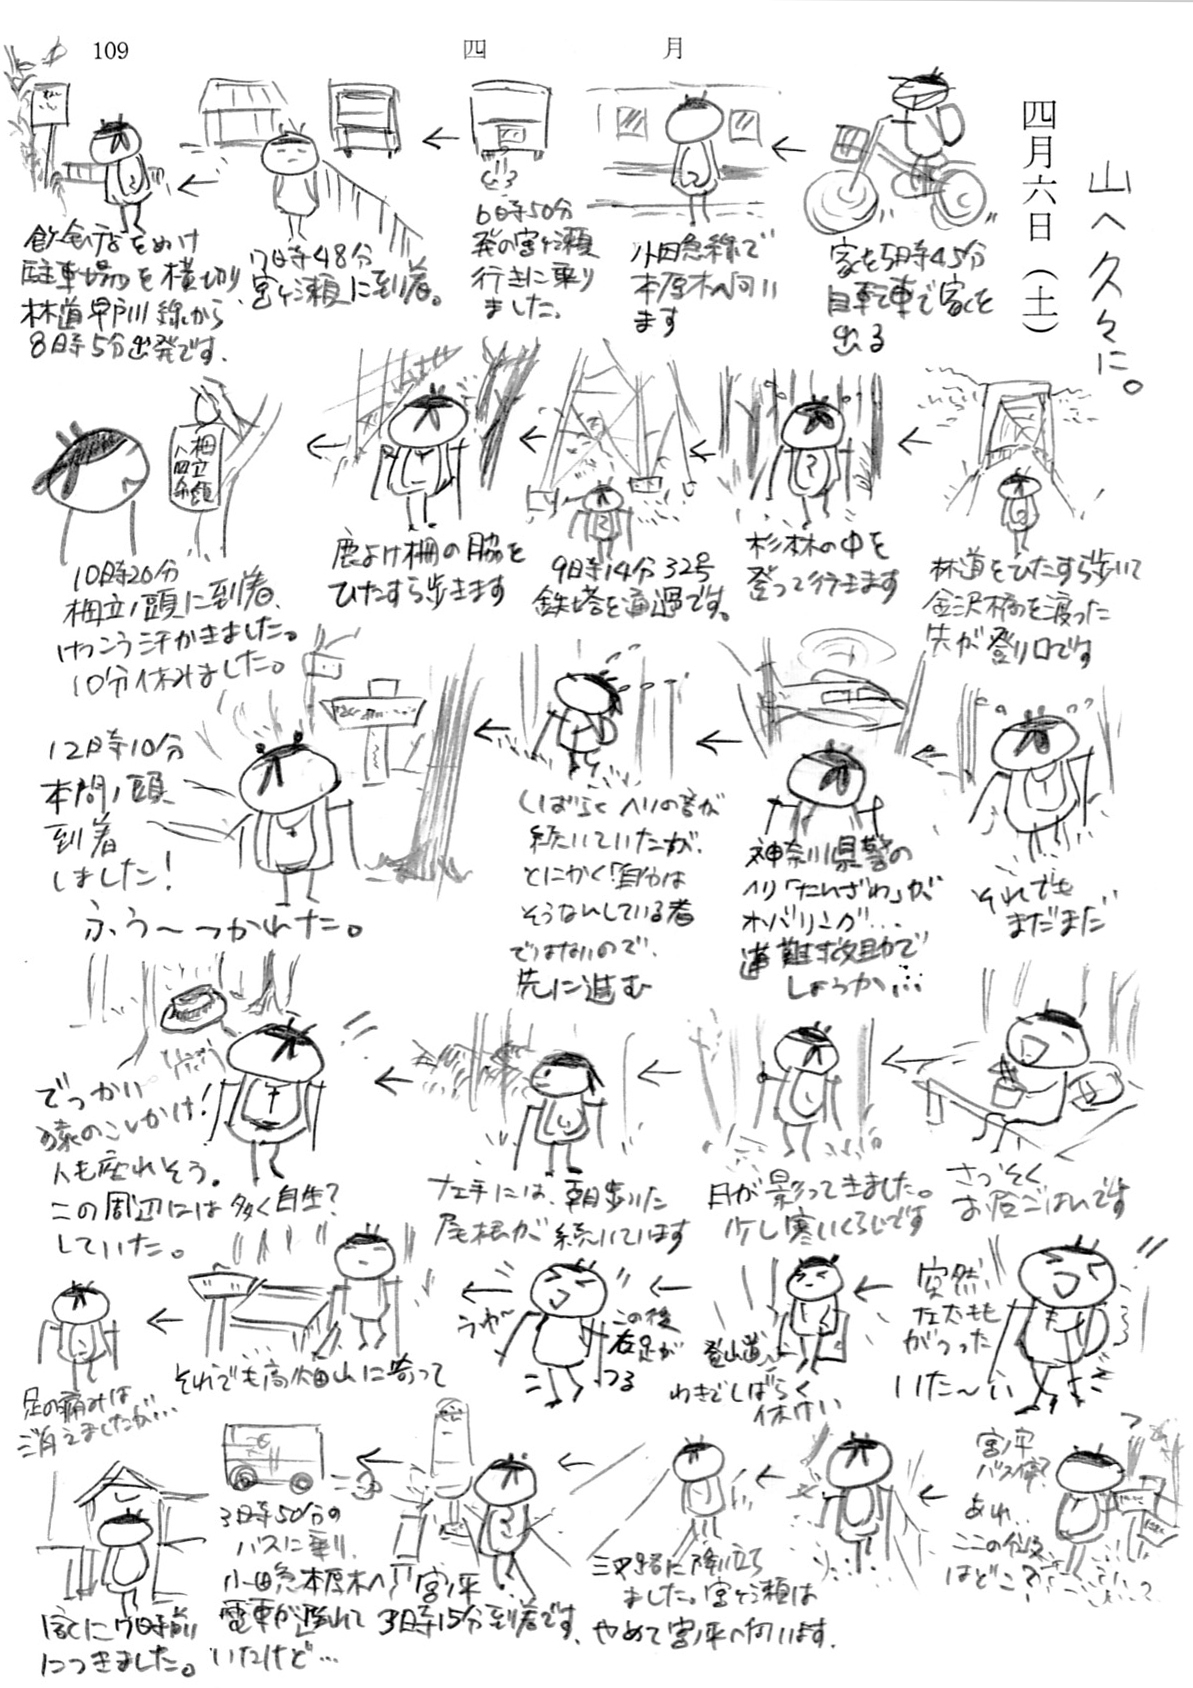 109
四月
四月六日(土)
山へ久々に。
家を5時45分
自転車で家を
出る
小田急線で
本厚木へ向い
ます
6時50分
発の宮ヶ瀬
行きに乗り
ました。
7時48分
宮ヶ瀬に到着。
飲食店をぬけ
駐車場を横切り
林道早戸川線から
8時5分出発です。
林道をひたすら歩いて
金沢橋を渡った
先が登り口です
杉林の中を
登って行きます
9時14分32号
鉄塔を通過です。
鹿よけ柵の脇を
ひたすら歩きます
10時20分
栂立ノ頭に到着、
けっこう汗かきました。
10分休みました。
それでも
まだまだ
神奈川県警の
ヘリ「たんざわ」が
ホバリング…
遭難救助で
しょうか…
しばらくヘリの音が
続いていたが、
とにかく「自分は
そうなんしている者
ではないので、
先に進む
12時10分
本間ノ頭
到着
しました!
ふう〜つかれた。
さっそく
お昼ごはんです
日が影ってきました。
少し寒いくらいです
左手には、朝歩いた
尾根が続いています
でっかい
猿のこしかけ!
人も座れそう。
この周辺には多く自生?
していた。
突然、
左太もも
がつった
いた〜い
登山道
わきでしばらく
休けい
この後
右足が
つる
うわ〜
それでも高畑山に寄って
足の痛みは
消えましたが…
宮ノ平
バス停?
あれ…
ここの分岐
はどこ?
三叉路に降り立ち
ました。宮ヶ瀬は
やめて宮ノ平へ向います。
宮ノ平
3時15分到着です、
3時50分の
バスに乗り、
小田急本厚木へ
電車が遅れて
いたけど…
家に7時前
につきました。